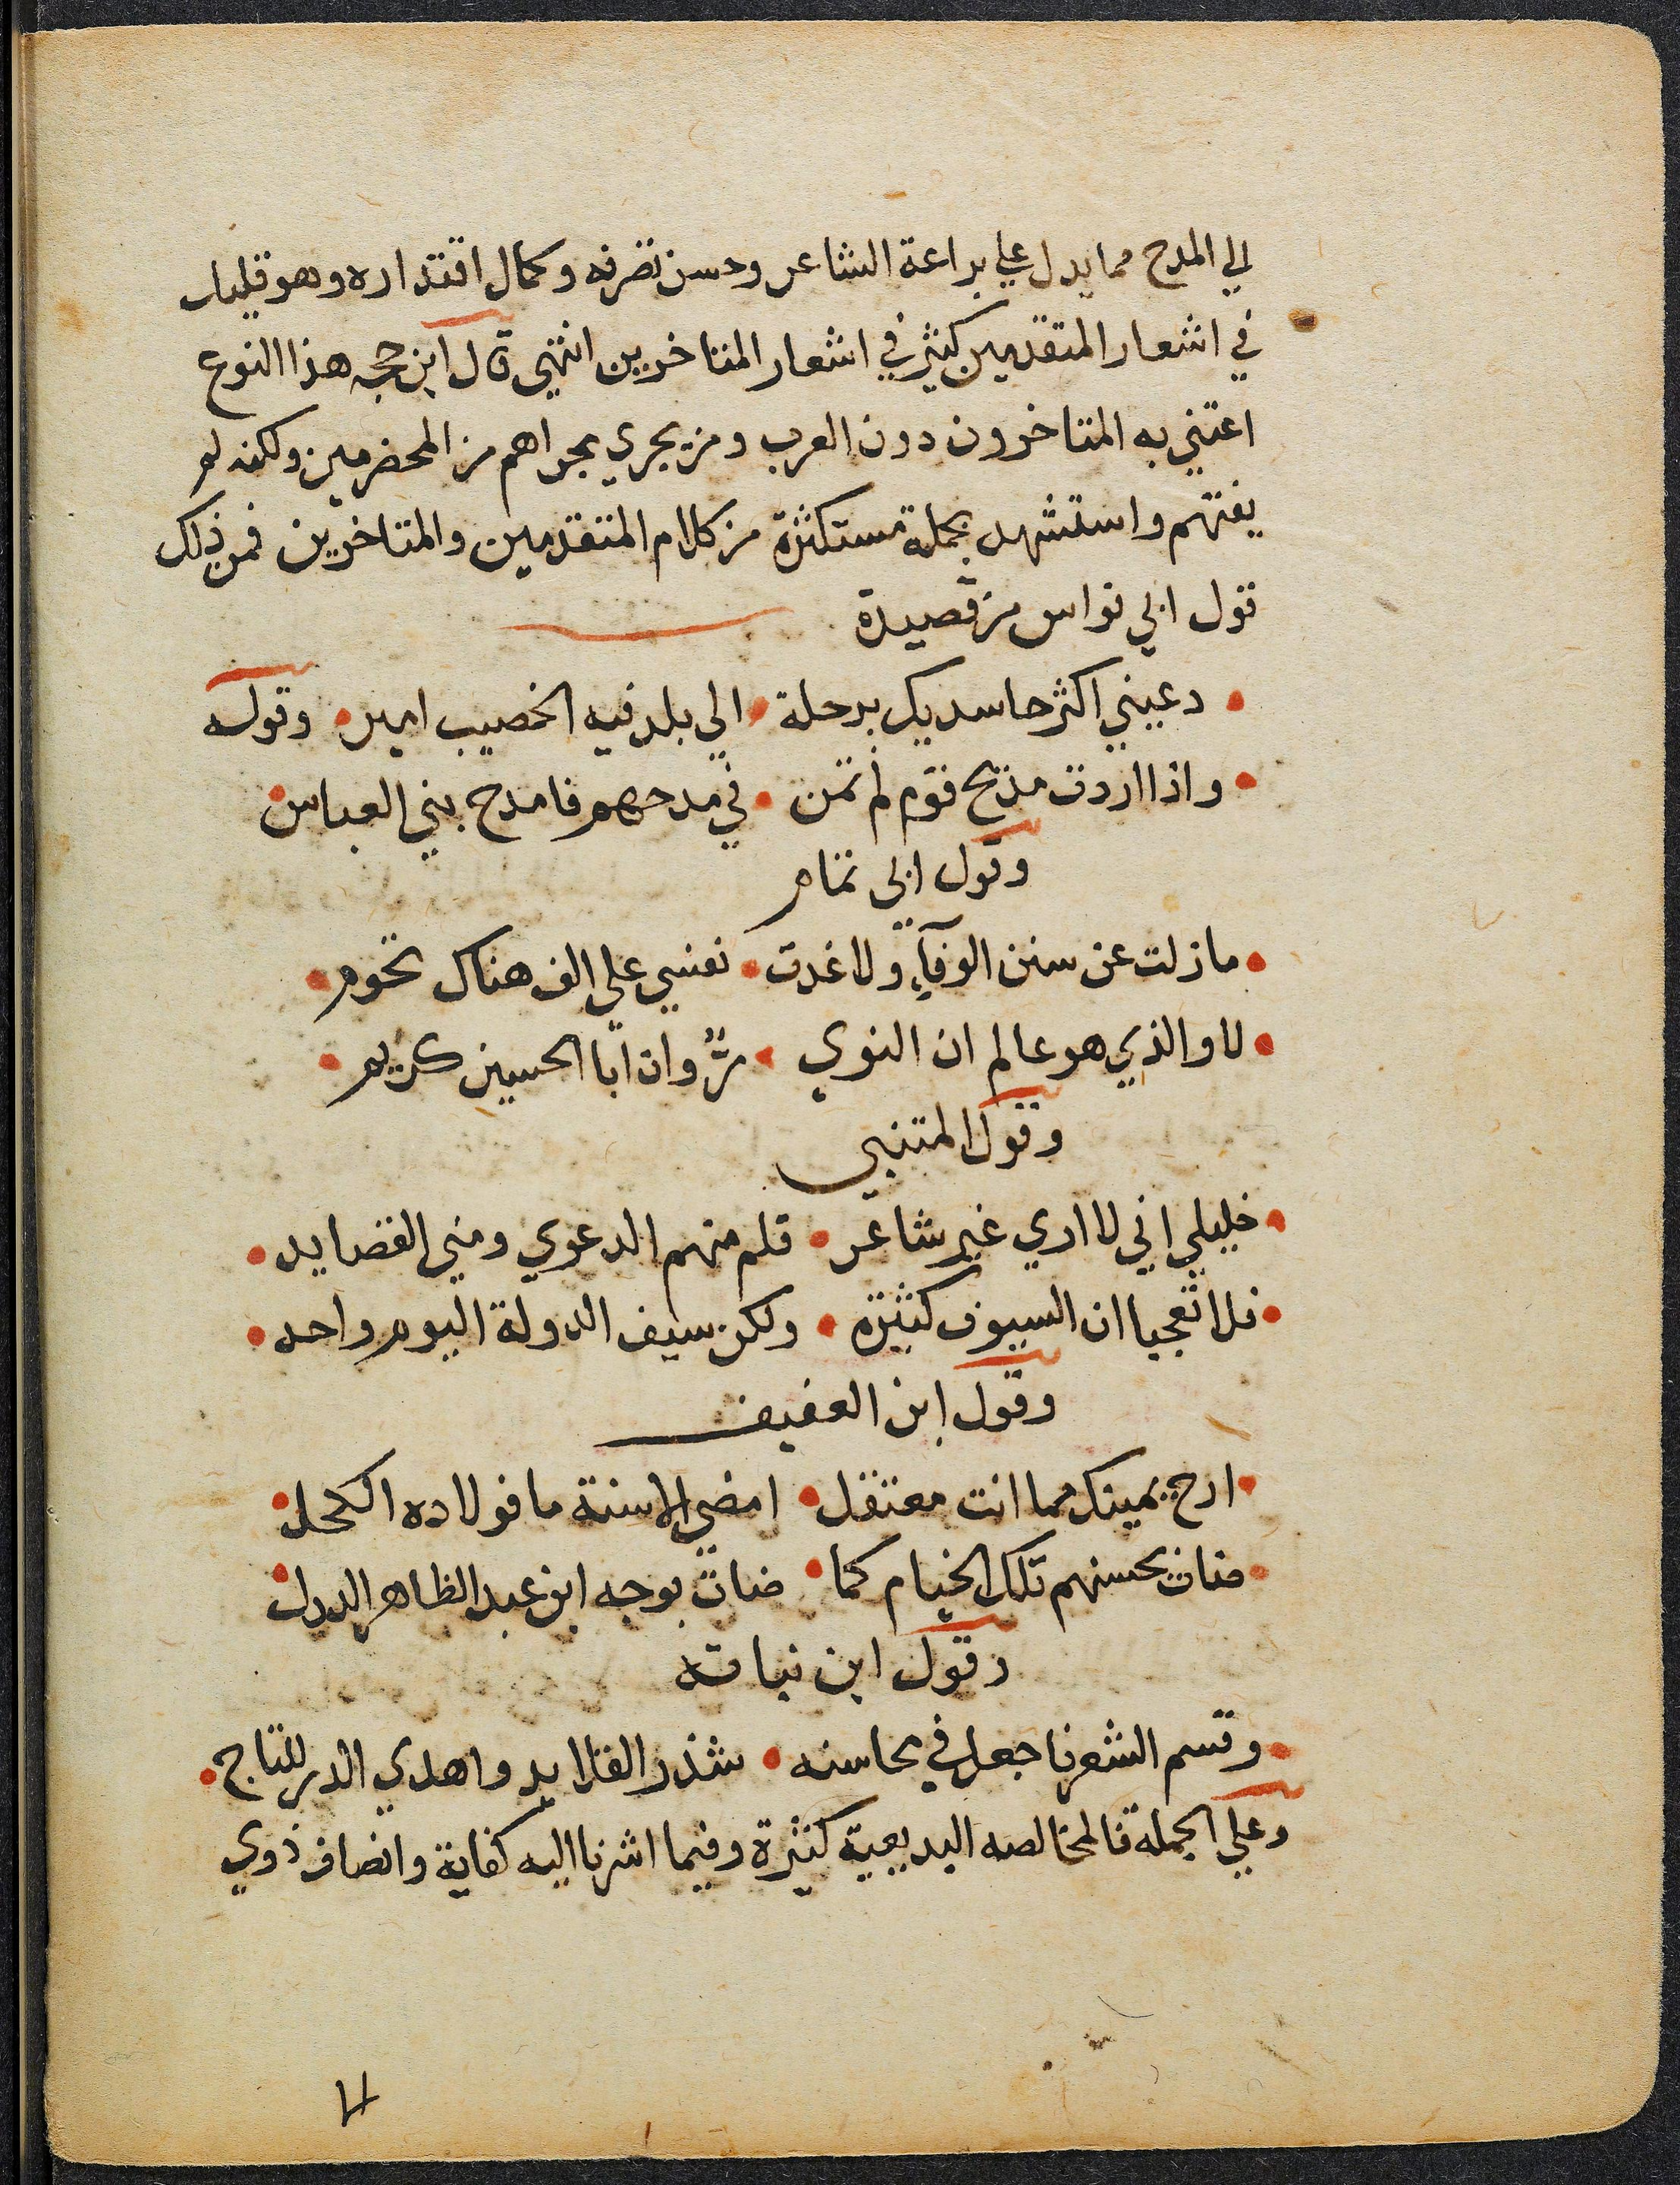 الي المدح مما يدل علي براعة الشاعر وحسن تصرفه وكمال اقتداره وهو قليل
في اشعار المتقدمين كثير في اشعار المتاخرين انتهي قال ابن حجه هذا النوع
اعتني به المتاخرون دون العرب ومن يجري مجراهم من المخضرمين ولكنه لم
يفتهم واستشهد بجملة مستكثرة من كلام المتقدمين والمتاخرين فمن ذلك
قول ابي نواس من قصيدة
دعيني اكثر حاسديك برحلة الي بلد فيه الخصيب امير وقوله
واذا اردت مديح قوم لم تمن في مدحهم فامدح بني العباس
وقول ابي تمام
ما زلت عن سنن الوفآء ولا غدت نفسي علي الف هناك تحوم
لا والذي هو عالم ان النوي مرٌّ وان ابا الحسين كريم
وقول المتنبي
خليلي اني لا اري غير شاعر قلم منهم الدعوي ومني القصايد
فلا تعجبا ان السيوف كثيرة ولكن سيف الدولة اليوم واحد
وقول ابن العفيف
ارح يمينك مما انت معتقل امضي الاسنة ما فولاده الكحل
ضات بحسنهم تلك الخيام كما ضات بوجه ابن عبد الظاهر الدول
وقول ابن نباته
وقسم الشعر فاجعل في محاسنه شذر القلايد واهدي الدر للتاج
وعلي الجملة فالمخالصه البديعية كثيرة وفيما اشرنا اليه كفاية وانصاف ذوي